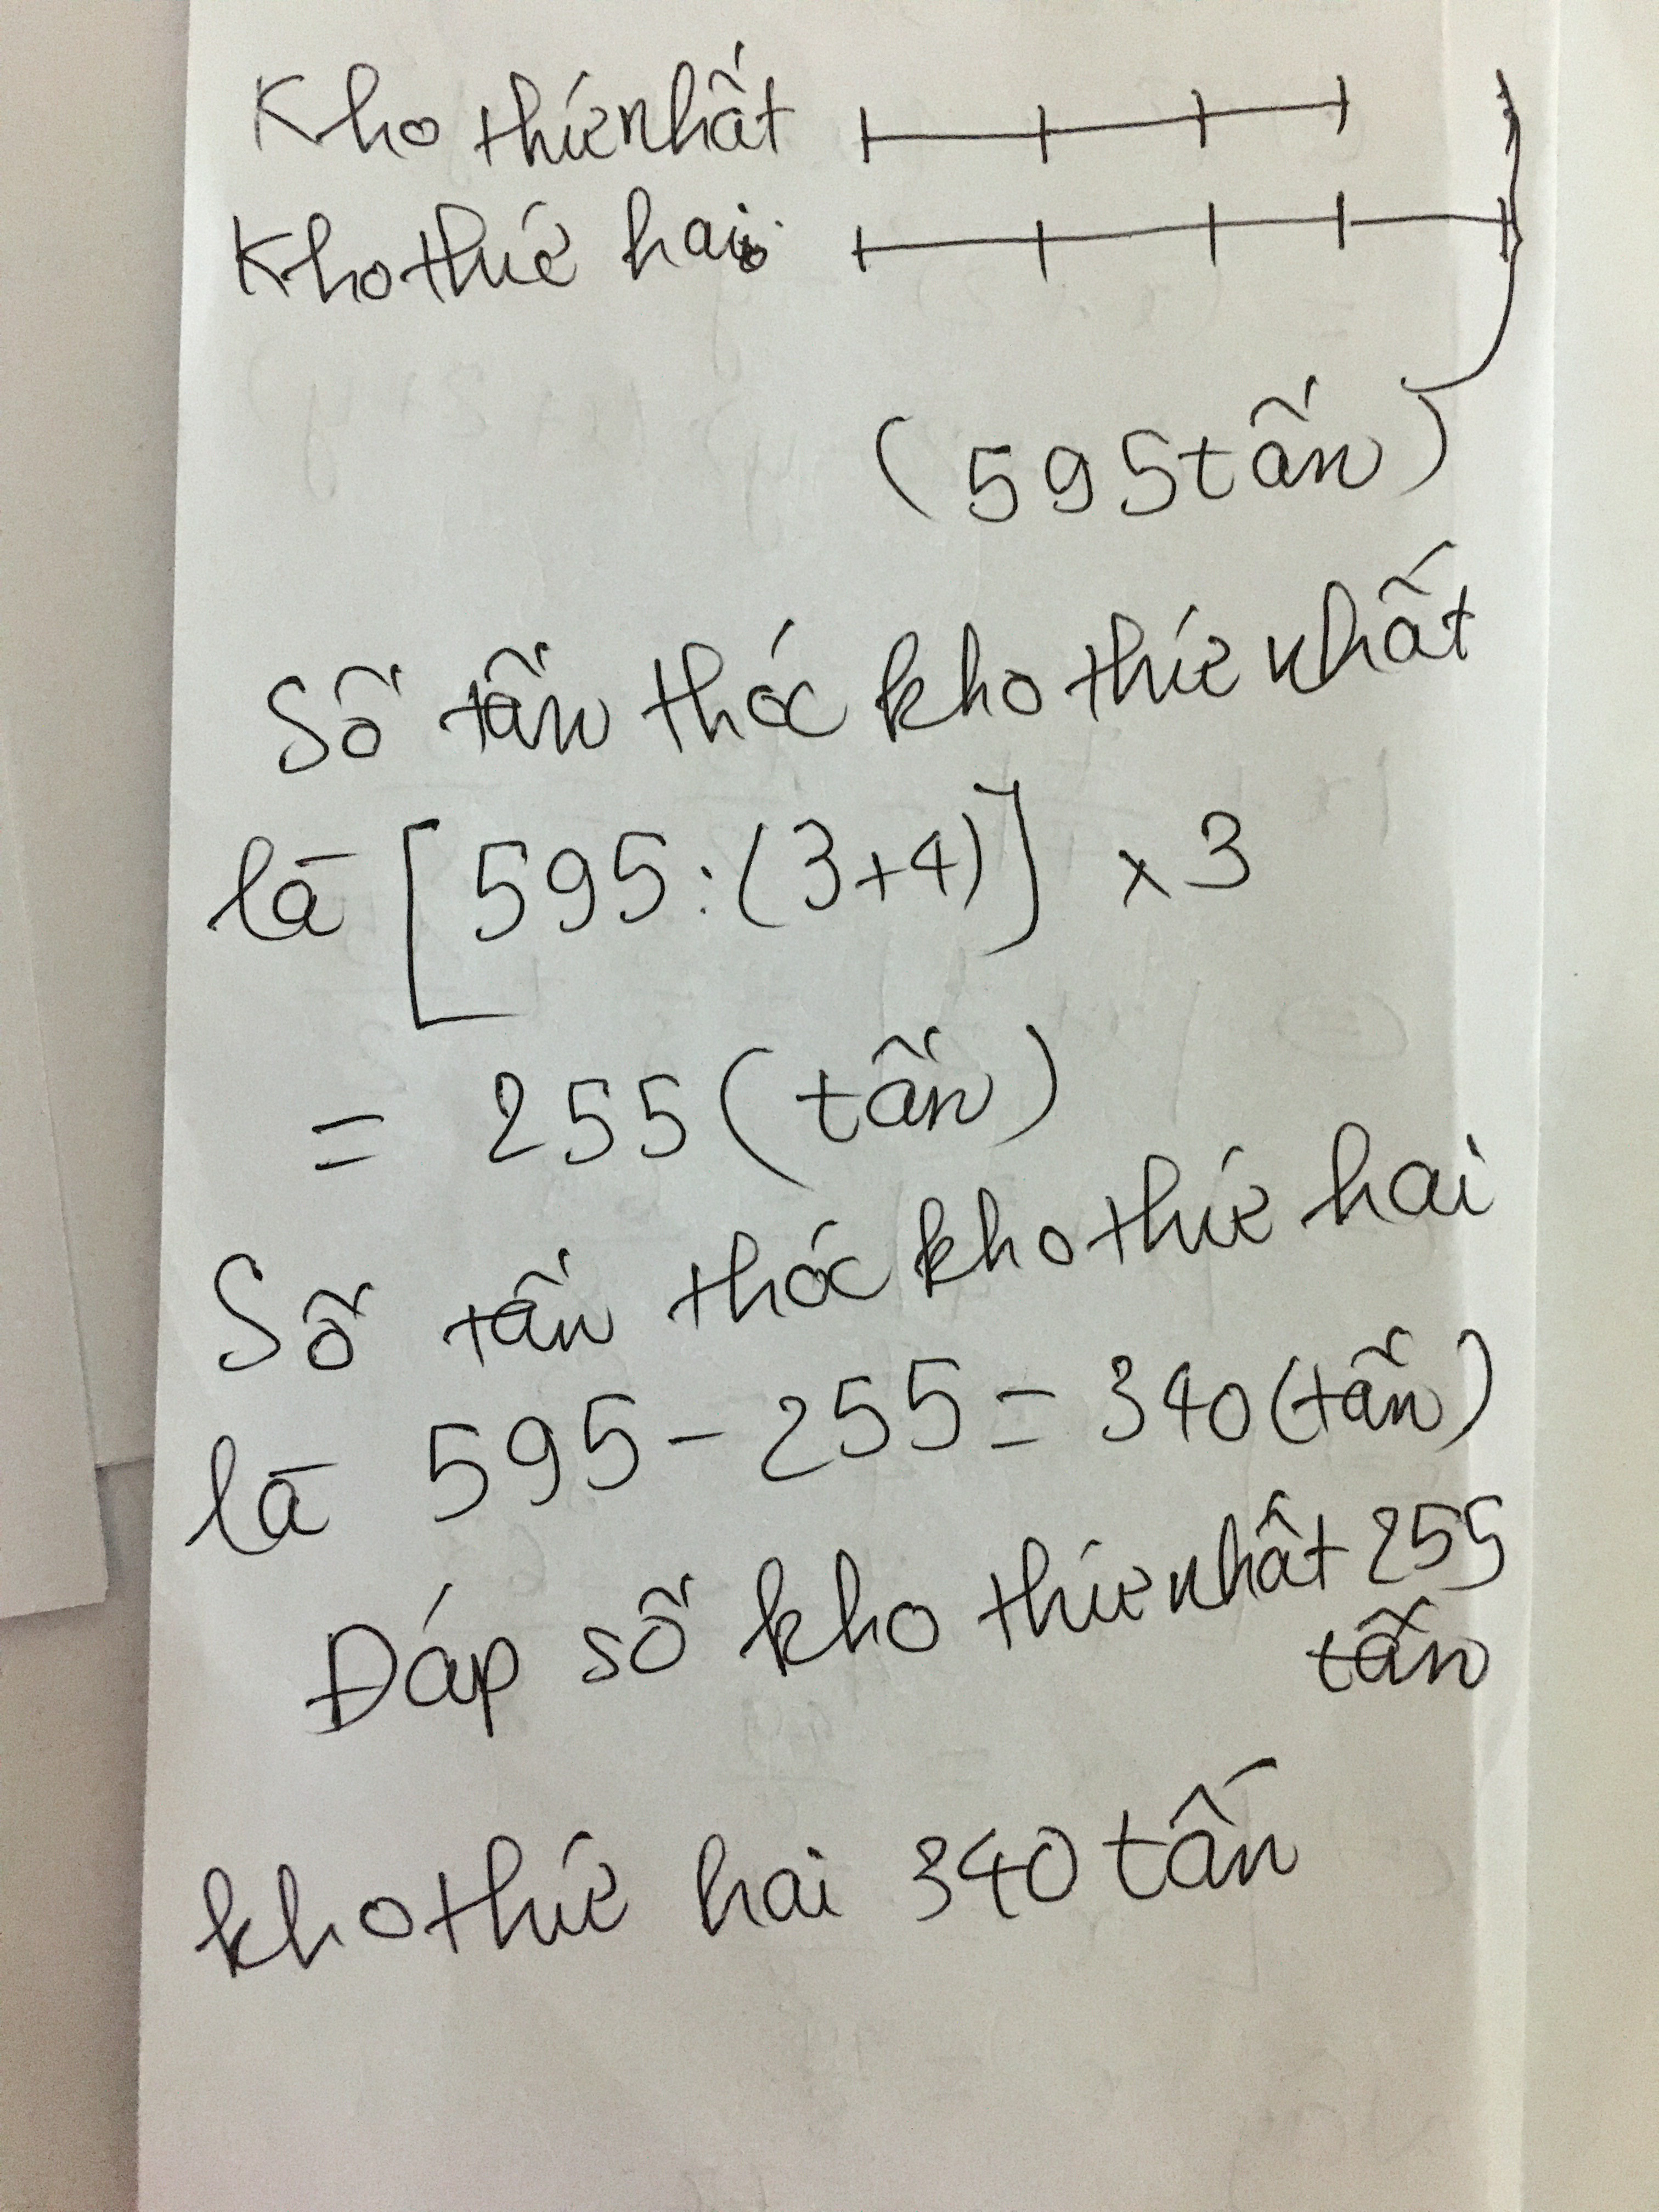 Kho thứ nhất
Kho thứ hai:
(595 tấn)
Số tấn thóc kho thứ nhất
là [595:(3+4)] × 3
= 255 (tấn)
Số tấn thóc kho thứ hai
là 595 - 255 = 340 (tấn)
Đáp số kho thứ nhất 255
tấn
kho thứ hai 340 tấn